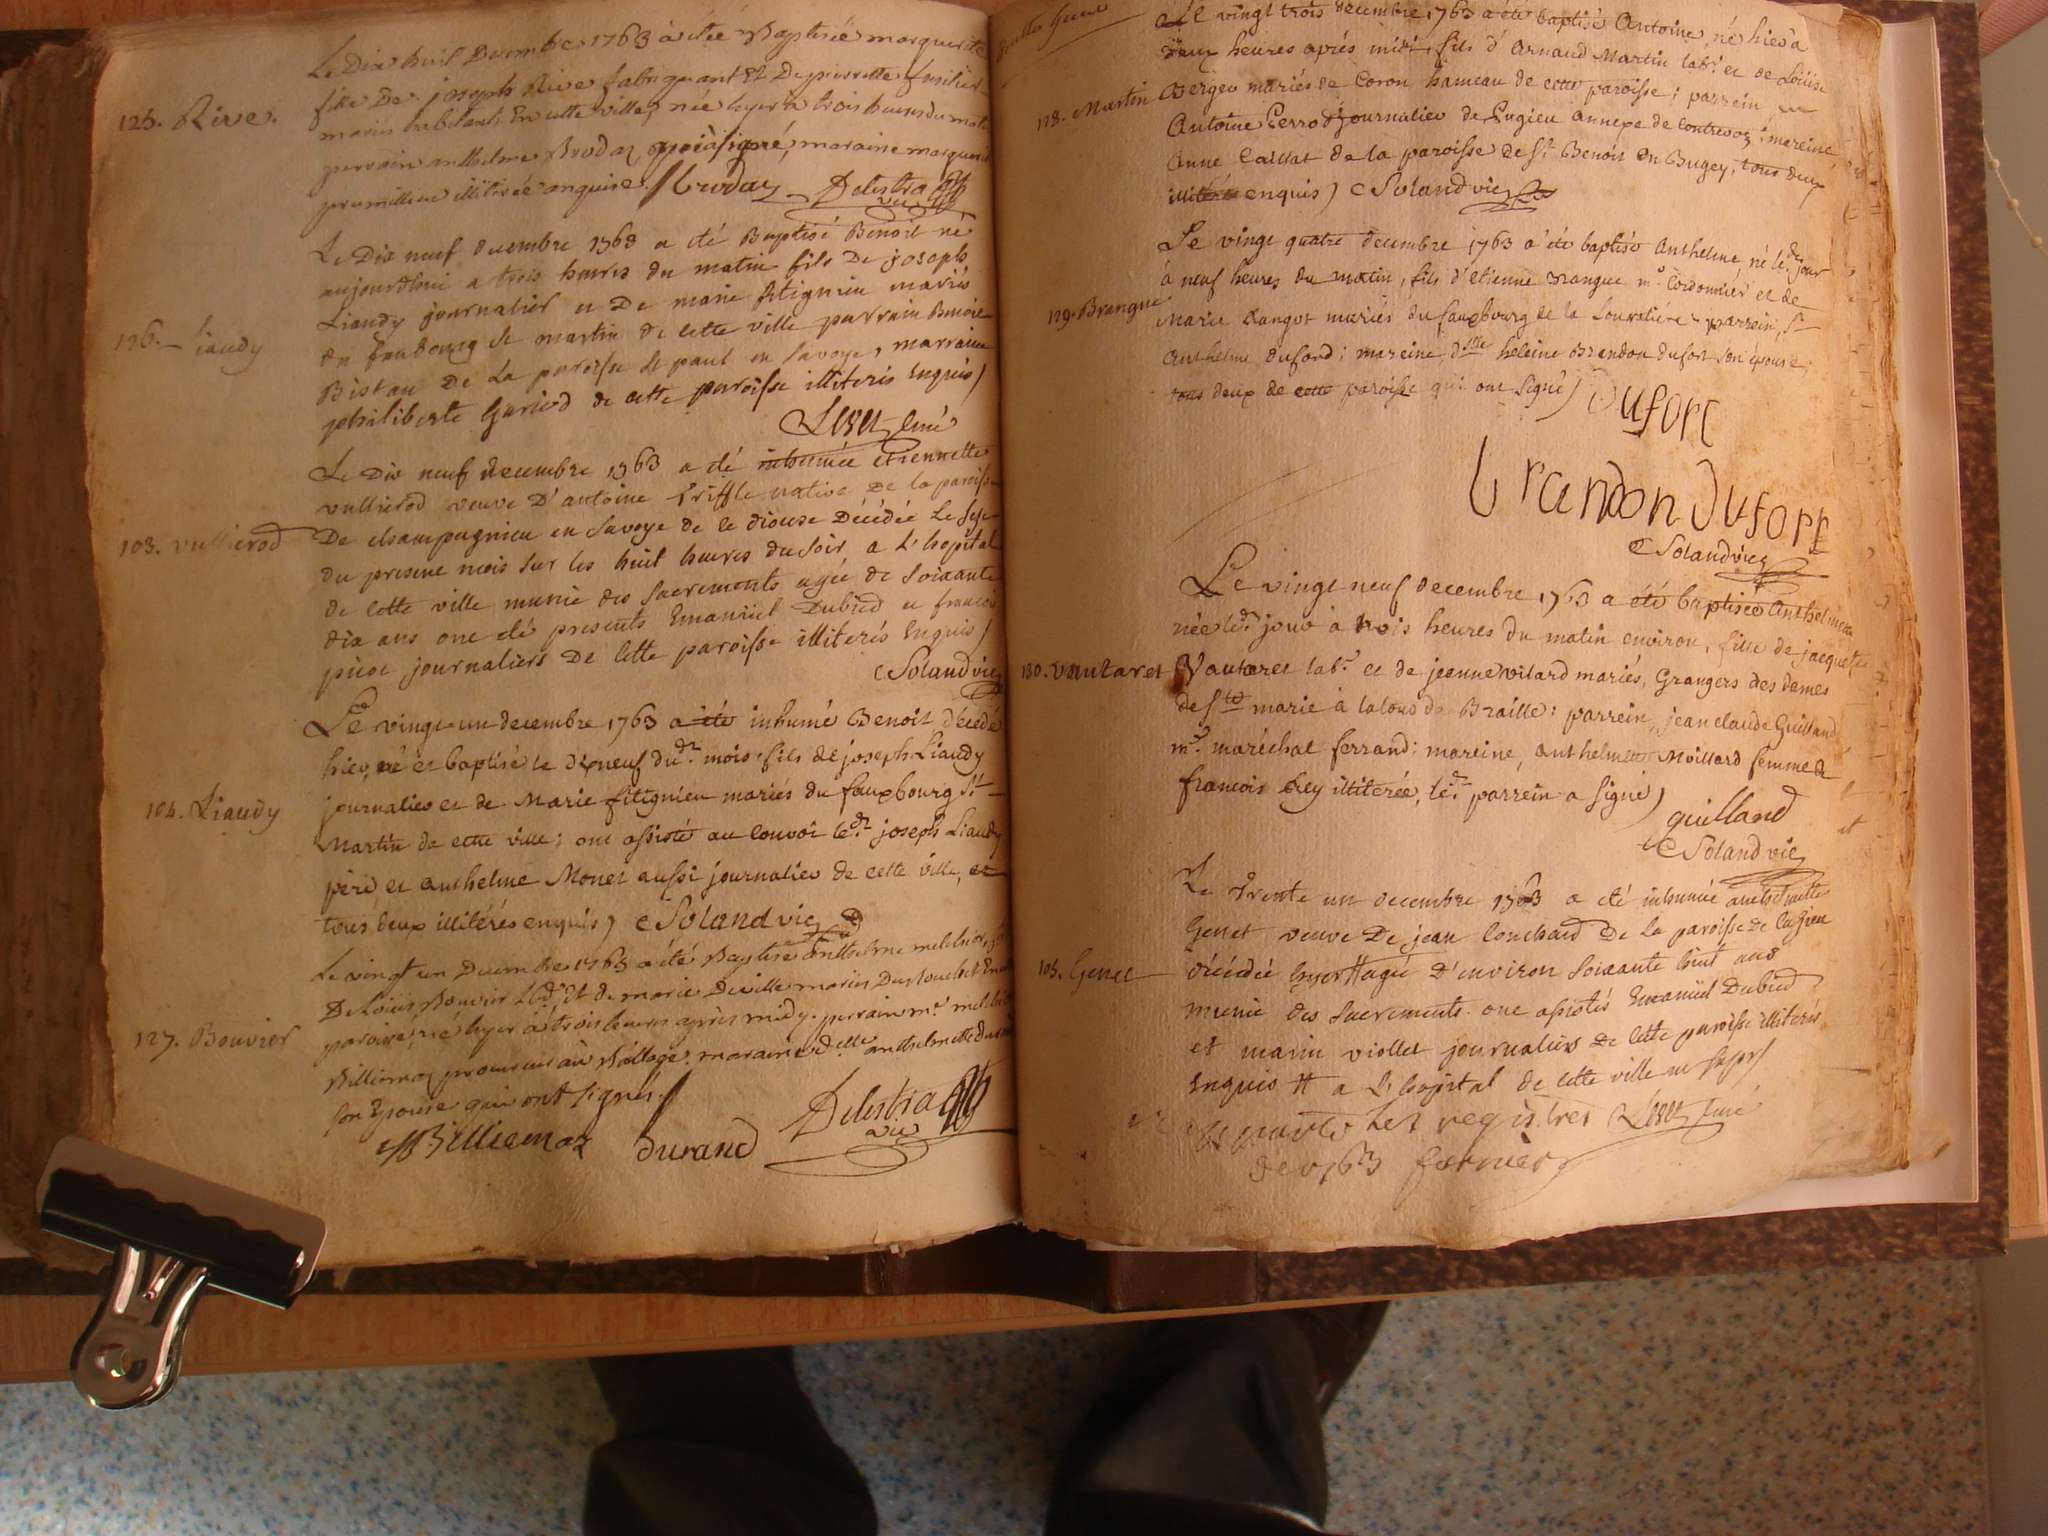 Le Dix huit Decembre 1763 a étée Baptisée marguerite
fille De joseph Rive fabriquant Et De pierrette
125. Rive.
mariés habitants En cette ville, née hyer a trois heures du matin
parrain anthelme Brodaz qui a signé, maraine marguerite
illitérée enquise. / Brodaz Delestra
vic
Le Dix neuf decembre 1763 a eté Baptisé Benoit né
aujourdhui a trois heures du matin fils De joseph
Liaudy journalier et De marie fitignieu mariés
126. Liaudy
du faubourg st martin de cette ville parrain Benoit
Bistau De La paroisse st paul en Savoye, marraine
philiberte Gariod de cette paroisse illiterés Enquis /
Curé
Le Dix neuf decembre 1763 a eté inhumée etiennette
vullierod veuve D'antoine triffle native De la paroisse
103. vullierod
De champagnieu en Savoye de ce diocese Décédée Le
du present mois sur les huit heures du soir a L'hopital
de cette ville munie des Sacrements agée de Soixante
dix ans ont eté presents Emanüel Dubied et francois
journaliers De cette paroisse illiterés Enquis /
Soland vic
Le vingt un decembre 1763 a été inhumé Benoit décédé
hier, né et baptisé le dixneuf du.dt mois, fils de joseph Liaudy
104. Liaudy
journalier et de Marie fitignieu mariés du fauxbourg St
Martin de cette ville; ont assisté au convoi le.dt joseph Liaudy
père et anthelme Monet aussi journalier de cette ville, et
tous deux illitérés enquis) Soland vic
Le vingt un Decembre 1763 a été Baptisé anthelme melchior, fils
De Loüis Bouvier Et de marie Deville mariés
127. Bouvier
paroisse, né hyer à trois heures après midy. parrain mr melchior
Billiemaz procureur au Bailliage. maraine d.elle anthelmette durand
son Epouse qui ont signés. /
Billiemaz durand Delestra
vic
Le vingt trois decembre 1763 a été baptisé Antoine, né hier à
deux heures après midi, fils d'Arnaud Martin labr. et de Loüise
128. Martin
Berger mariés de Coron hameau de cette paroisse; parrein
Antoine Perrod journalier de Pugieu annexe de Contrevoz; mareine
Anne Caillat de la paroisse de St Benoit en Bugey, tous deux
illitérés enquis) Soland vic
Le vingt quatre decembre 1763 a été baptisé Anthelme, né le.dt jour
à neuf heures du matin, fils d'etienne Brangue me. Cordonnier et de
129. Brangue
Marie Rangot mariés du fauxbourg de la Louvatière; parrein, Sr
Anthelme duford; mareine, d.elle heleine Brandon dufort son épouse;
tous deux de cette paroisse qui ont signé)
Dufort
brandon Dufort
Soland vic
Le vingt neuf decembre 1763 a été baptisée Anthelmette
née le.dt jour à trois heures du matin environ, fille de jacques
130. Vautaret
Vautaret labr. et de jeanne vilard mariés, Grangers des demes
de Ste marie à de Braille: parrein, jean claude Guilland
me. maréchal ferrand; mareine, anthelmette Moillard femme de
francois Rey illitérée, le.dt parrein a signé)
guilland
Soland vic
Le Trente un decembre 1763 a eté inhumée anthelmette
Genet veuve De jean Couchard De La paroisse de
105. Genet
décédée hyer # agée D'environ Soixante huit ans
munie des Sacrements. ont assistés Emanüel Dubied
et marin viollet journaliers de cette paroisse illiterés
Enquis # a L'hopital de cette ville
Curé
les registres
de 1763